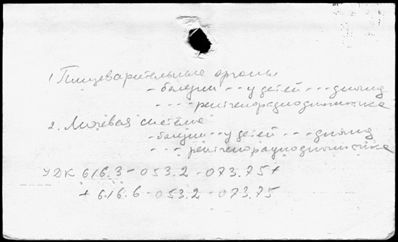 1. Пищеварительные органы
- болезни - - у детей - - - диагид
- - - - рентгенорадиодиагностика
2. Мочевая система
- болезни - - у детей - - - диагид
- - - рентгенорадиодиагностика
УДК 616.3-053.2-073.75+
+ 616.6-053.2-073.75